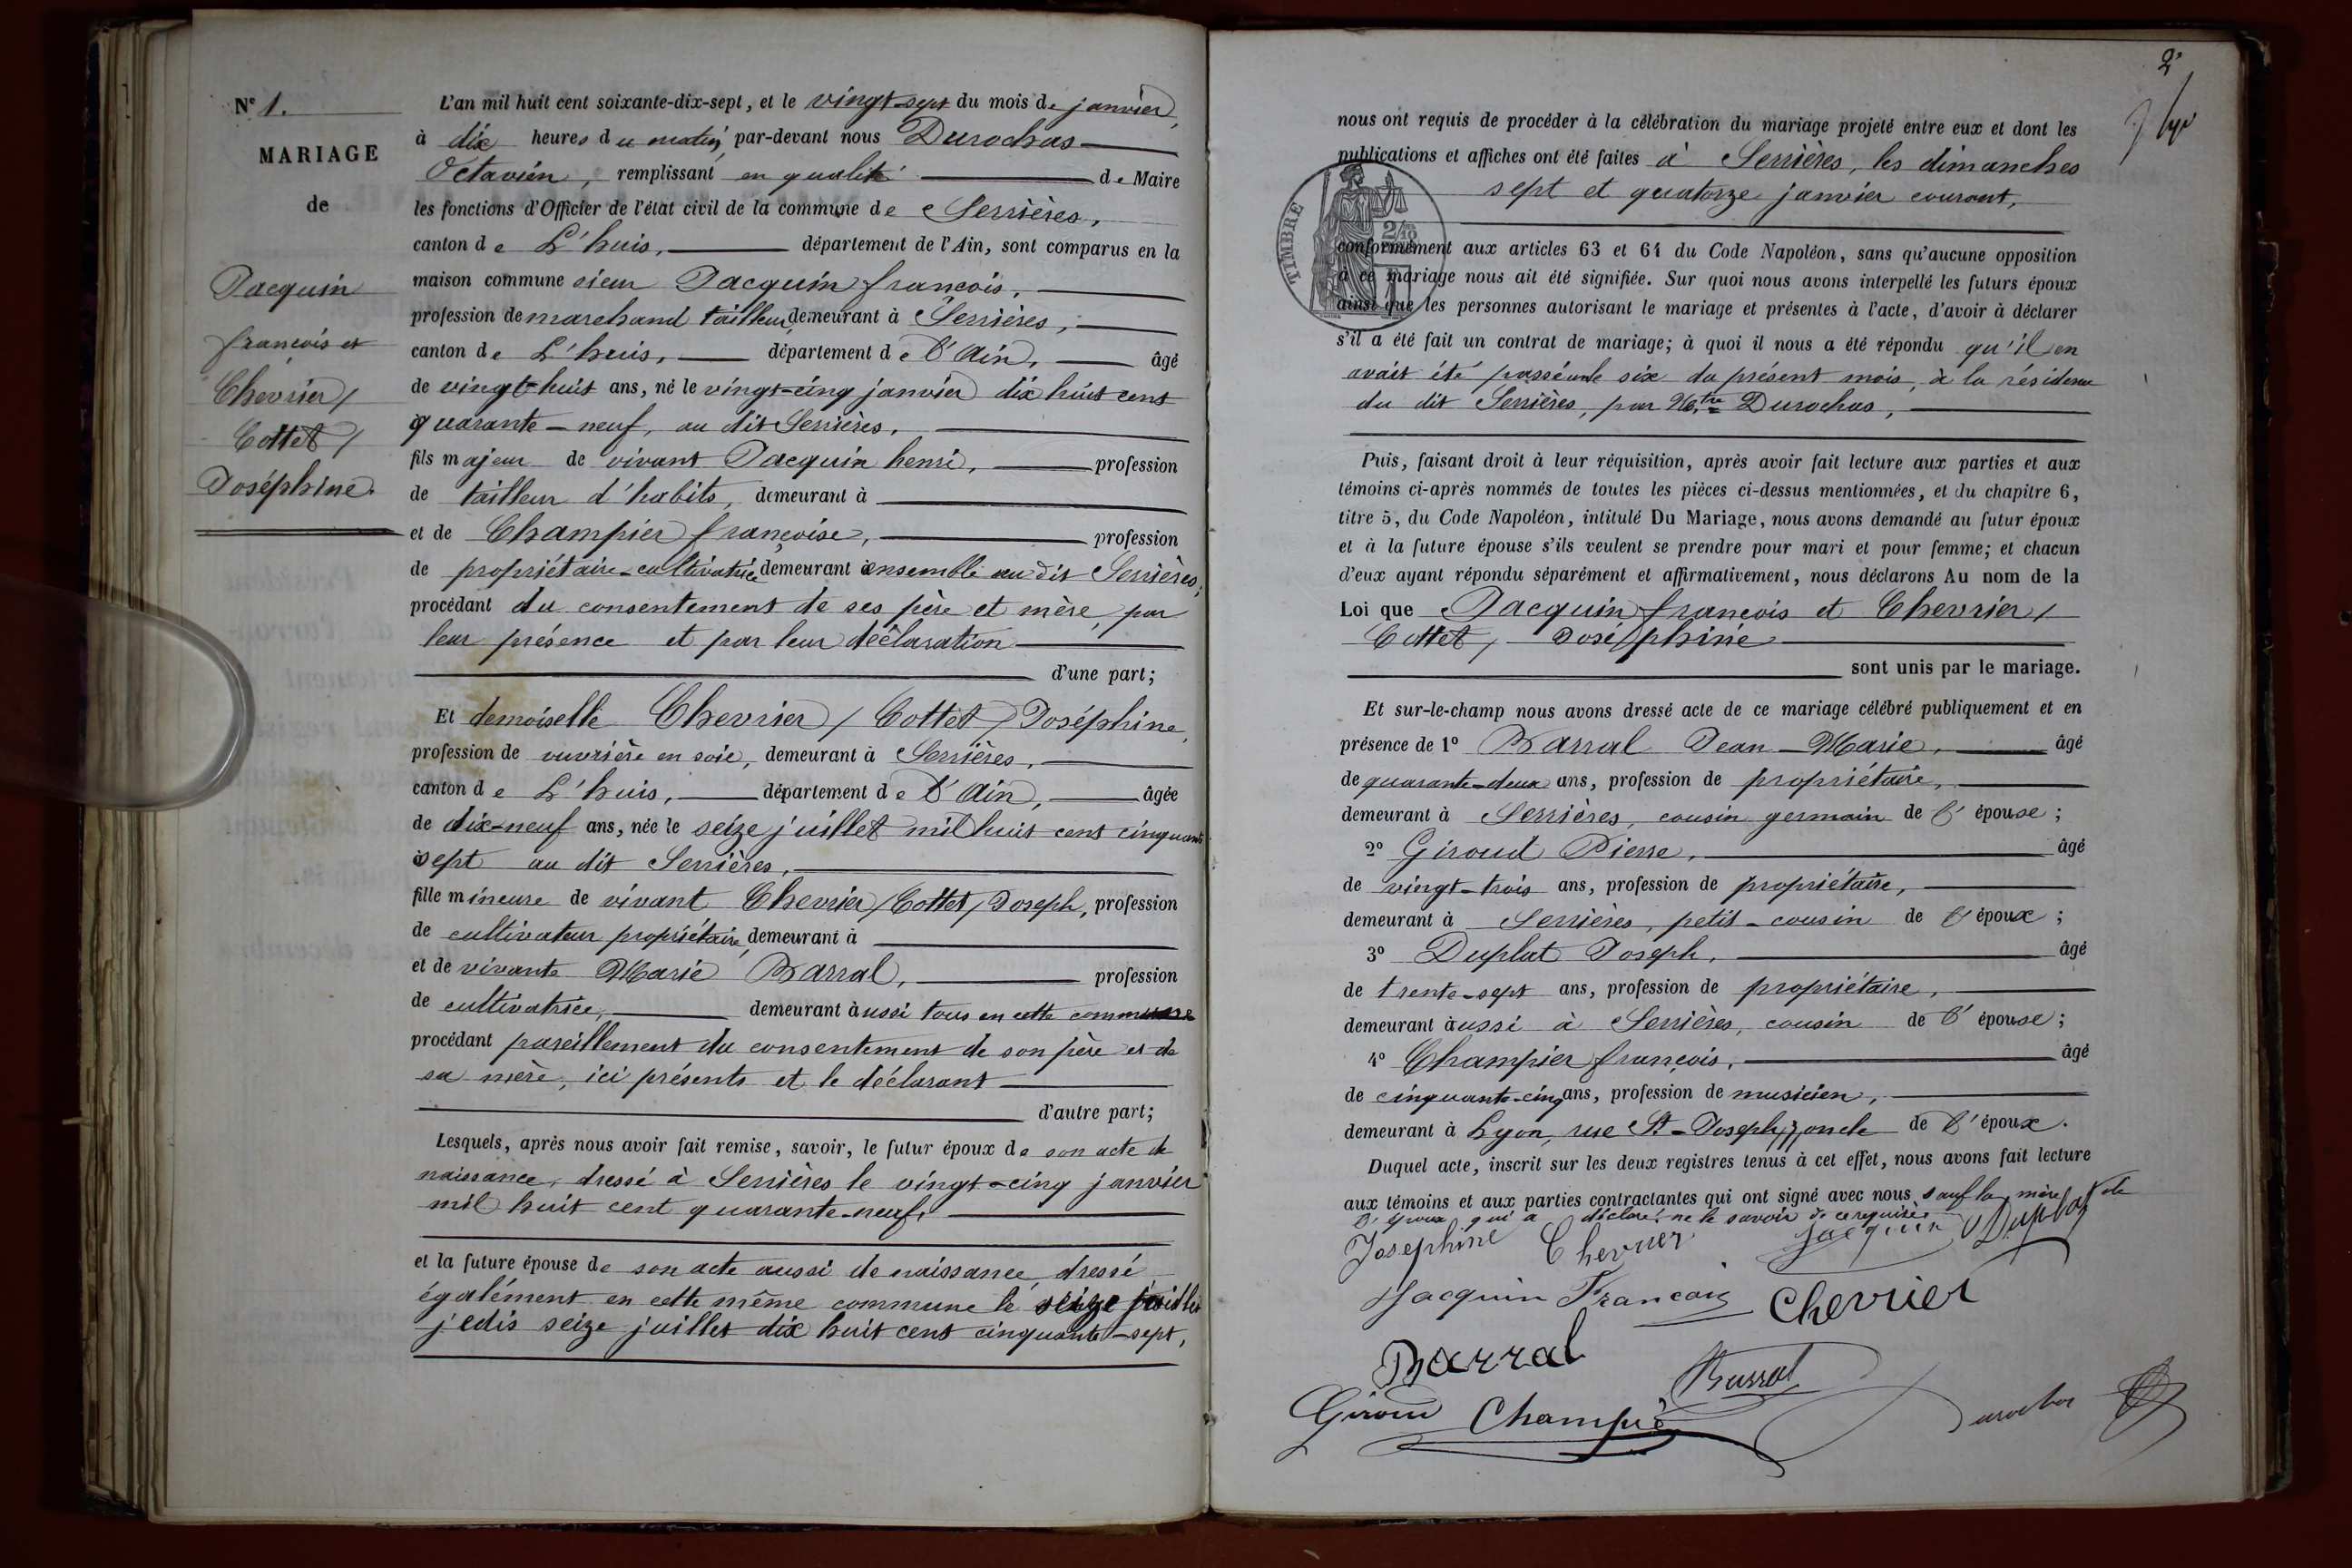 N° 1.
MARIAGE
de
Jacquin
françois et
Chevrier /
Cottet /
Joséphine.
L'an mil huit cent soixante-dix-sept, et le vingt-sept du mois de janvier,
à dix heures du matin, par-devant nous Durochas
Octavien, remplissant en qualité de Maire
les fonctions d'Officier de l'état civil de la commune de Serrières,
canton de L'huis, département de l'Ain, sont comparus en la
maison commune sieur Jacquin françois,
profession de marchand tailleur, demeurant à Serrières,
canton de L'huis, département de l'Ain, âgé
de vingt-huit ans, né le vingt-cinq janvier dix huit cent
quarante-neuf, au dit Serrières,
fils majeur de vivant Jacquin henri, profession
de tailleur d'habits, demeurant à
et de Champier françoise, profession
de propriétaire-cultivatrice demeurant ensemble au dit Serrières;
procédant du consentement de ses père et mère, par
leur présence et par leur déclaration
d'une part;
Et demoiselle Chevrier / Cottet / Joséphine,
profession de ouvrière en soie, demeurant à Serrières,
canton de L'huis, département de l'Ain, âgée
de dix-neuf ans, née le seize juillet mil huit cent cinquante
sept au dit Serrières,
fille mineure de vivant Chevrier / Cottet / Joseph, profession
de cultivateur propriétaire, demeurant à
et de vivante Marie Barral, profession
de cultivatrice, demeurant aussi tous en cette commune
procédant pareillement du consentement de son père et de
sa mère, ici présents et le déclarant
d'autre part;
Lesquels, après nous avoir fait remise, savoir, le futur époux de son acte de
naissance, dressé à Serrières le vingt-cinq janvier
mil huit cent quarante-neuf,
et la future épouse de son acte aussi de naissance, dressé
également en cette même commune le seize juillet
jedis seize juillet dix huit cent cinquante-sept,
2
nous ont requis de procéder à la célébration du mariage projeté entre eux et dont les
publications et affiches ont été faites à Serrières, les dimanches
sept et quatorze janvier courant,
TIMBRE
2/10
conformément aux articles 63 et 64 du Code Napoléon, sans qu'aucune opposition
à ce mariage nous ait été signifiée. Sur quoi nous avons interpellé les futurs époux
ainsi que les personnes autorisant le mariage et présentes à l'acte, d'avoir à déclarer
s'il a été fait un contrat de mariage; à quoi il nous a été répondu qu'il en
avait été passé un le six du présent mois, à la résidence
du dit Serrières, par M.tre Durochas,
Puis, faisant droit à leur réquisition, après avoir fait lecture aux parties et aux
témoins ci-après nommés de toutes les pièces ci-dessus mentionnées, et du chapitre 6,
titre 5, du Code Napoléon, intitulé Du Mariage, nous avons demandé au futur époux
et à la future épouse s'ils veulent se prendre pour mari et pour femme; et chacun
d'eux ayant répondu séparément et affirmativement, nous déclarons Au nom de la
Loi que Jacquin françois et Chevrier /
Cottet / Joséphine
sont unis par le mariage.
Et sur-le-champ nous avons dressé acte de ce mariage célébré publiquement et en
présence de 1° Barral Jean-Marie, âgé
de quarante-deux ans, profession de propriétaire,
demeurant à Serrières, cousin germain de l'épouse;
2° Giroud Pierre, âgé
de vingt-trois ans, profession de propriétaire,
demeurant à Serrières, petit-cousin de l'époux;
3° Duplat Joseph, âgé
de trente-sept ans, profession de propriétaire,
demeurant aussi à Serrières, cousin de l'épouse;
4° Champier françois, âgé
de cinquante-cinq ans, profession de musicien,
demeurant à Lyon, rue St-Joseph, oncle de l'époux.
Duquel acte, inscrit sur les deux registres tenus à cet effet, nous avons fait lecture
aux témoins et aux parties contractantes qui ont signé avec nous, sauf la mère de
l'époux qui a déclaré ne le savoir de ce requise.
Josephine Chevrier Jacquin Duplat
Jacquin Francois Chevrier
Barral Barral
Giroud Champié Durochas